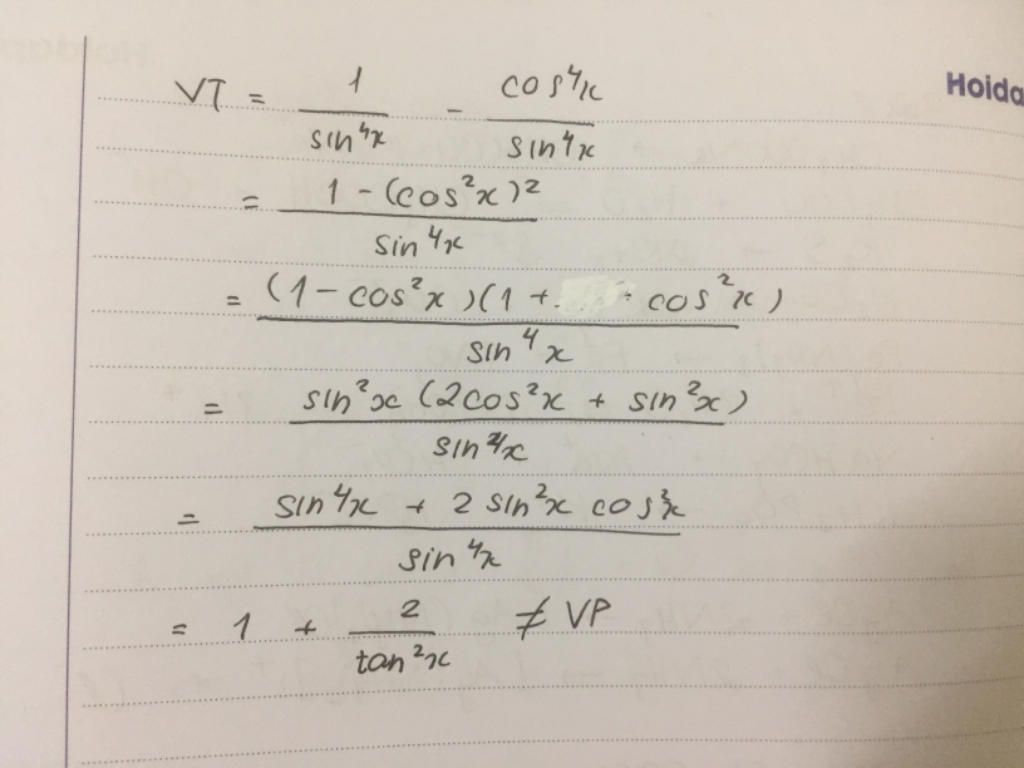 Hoida
VT = 1/sin⁴x - cos⁴x/sin⁴x
= (1 - (cos²x)²)/sin⁴x
= ((1 - cos²x)(1 + cos²x))/sin⁴x
= (sin²x (2cos²x + sin²x))/sin⁴x
= (sin⁴x + 2 sin²x cos²x)/sin⁴x
= 1 + 2/tan²x ≠ VP